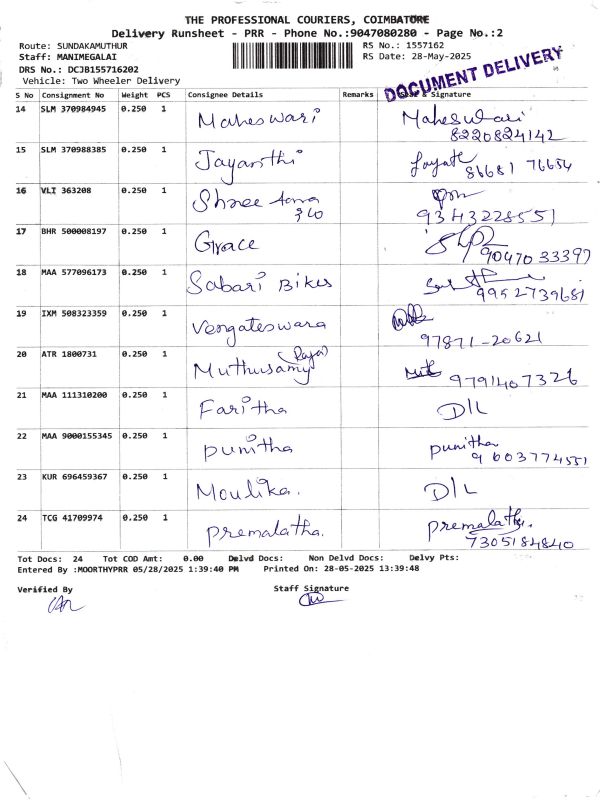 THE PROFESSIONAL COURIERS, COIMBATORE
Delivery Runsheet - PRR - Phone No.:9047080280 - Page No.:2
Route: SUNDAKAMUTHUR RS No.: 1557162
Staff: MANIMEGALAI RS Date: 28-May-2025
DRS No.: DCJB155716202
Vehicle: Two Wheeler Delivery
DOCUMENT DELIVERY
S No Consignment No Weight PCS Consignee Details Remarks & Signature
14 SLM 370984945 0.250 1 Maheswari Maheswari
8220824142
15 SLM 370988385 0.250 1 Jayanthi 86681 76654
16 VLI 363208 0.250 1 Shree
360 9343228551
17 BHR 500008197 0.250 1 Grace
9047033397
18 MAA 577096173 0.250 1 Sabari Bikes
9952739681
19 IXM 508323359 0.250 1 Vengateswara
97871-20621
20 ATR 1800731 0.250 1 Muthusamy (Raja) 9791407326
21 MAA 111310200 0.250 1 Faritha D/L
22 MAA 9000155345 0.250 1 punitha punitha
9603774551
23 KUR 696459367 0.250 1 Moulika. D/L
24 TCG 41709974 0.250 1 premalatha. premalatha.
7305184840
Tot Docs: 24 Tot COD Amt: 0.00 Delvd Docs: Non Delvd Docs: Delvy Pts:
Entered By :MOORTHYPRR 05/28/2025 1:39:40 PM Printed On: 28-05-2025 13:39:48
Verified By Staff Signature